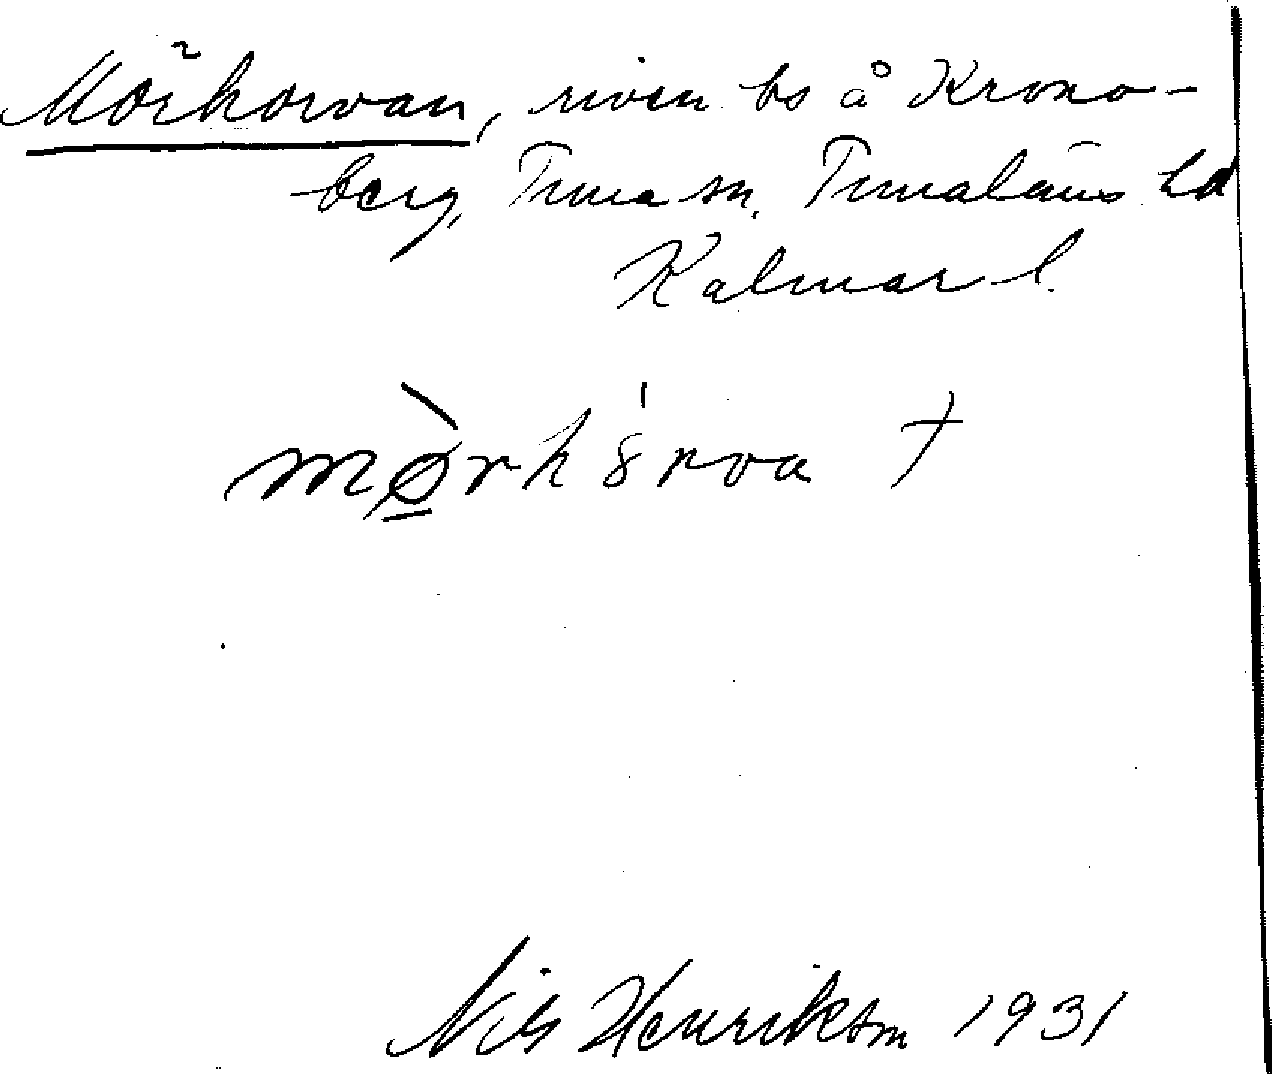 Mörkorvan, riven bs å Krono-
berg, Tuna sn, Tunaläns hd
Kalmar l.
mø̱̀rkȯ́rva †
Nils Henrikson 1931